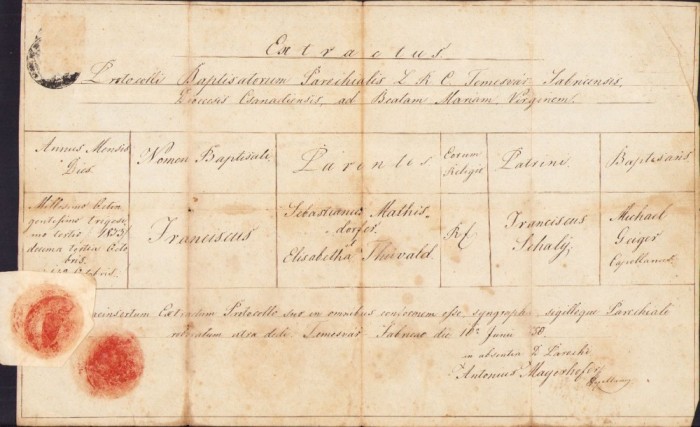 Extractus
Protocolli Baptisatorum Parochialis L. R. C. Temesvár Fabricensis,
Diocesis Csanadiensis, ad Beatam Mariam Virginem.
Annus Mensis
Dies.
Nomen Baptisati.
Parentes
Eorum
Religio
Patrini.
Baptisans
Millesimo Octin
gentesimo trigesi
mo tertio 1833
decima tertia Octo
bris.
Octobris.
Franciscus
Sebastianus Mathis-
dorfer
Elisabetha
R C
Franciscus
Michael
Geiger
Capellanus
Extractum Protocollo suo in omnibus conformem esse, sigilloque Parochiali
dedi Temesvár Fabricae die 10a Junii 50
in absentia D. Parochi
Antonius Mayerhofer